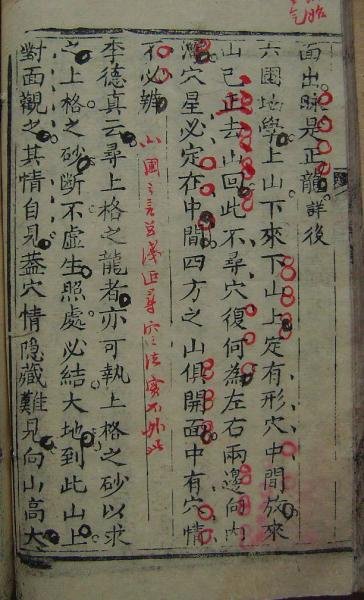 面出脉是正龍詳後
六圍地學上山下來下山上定有形穴中間放來
山己正去山回此不尋穴復何為左右兩邊向內
灣穴星必定在中間四方之山俱開面中有穴情
不必辨
山圍之言至淺近尋穴之法實不外此
李德真云尋上格之龍者亦可執上格之砂以求
之上格之砂斷不虛生照處必結大地到此山上
對面觀之其情自見蓋穴情隐藏難見向山高大